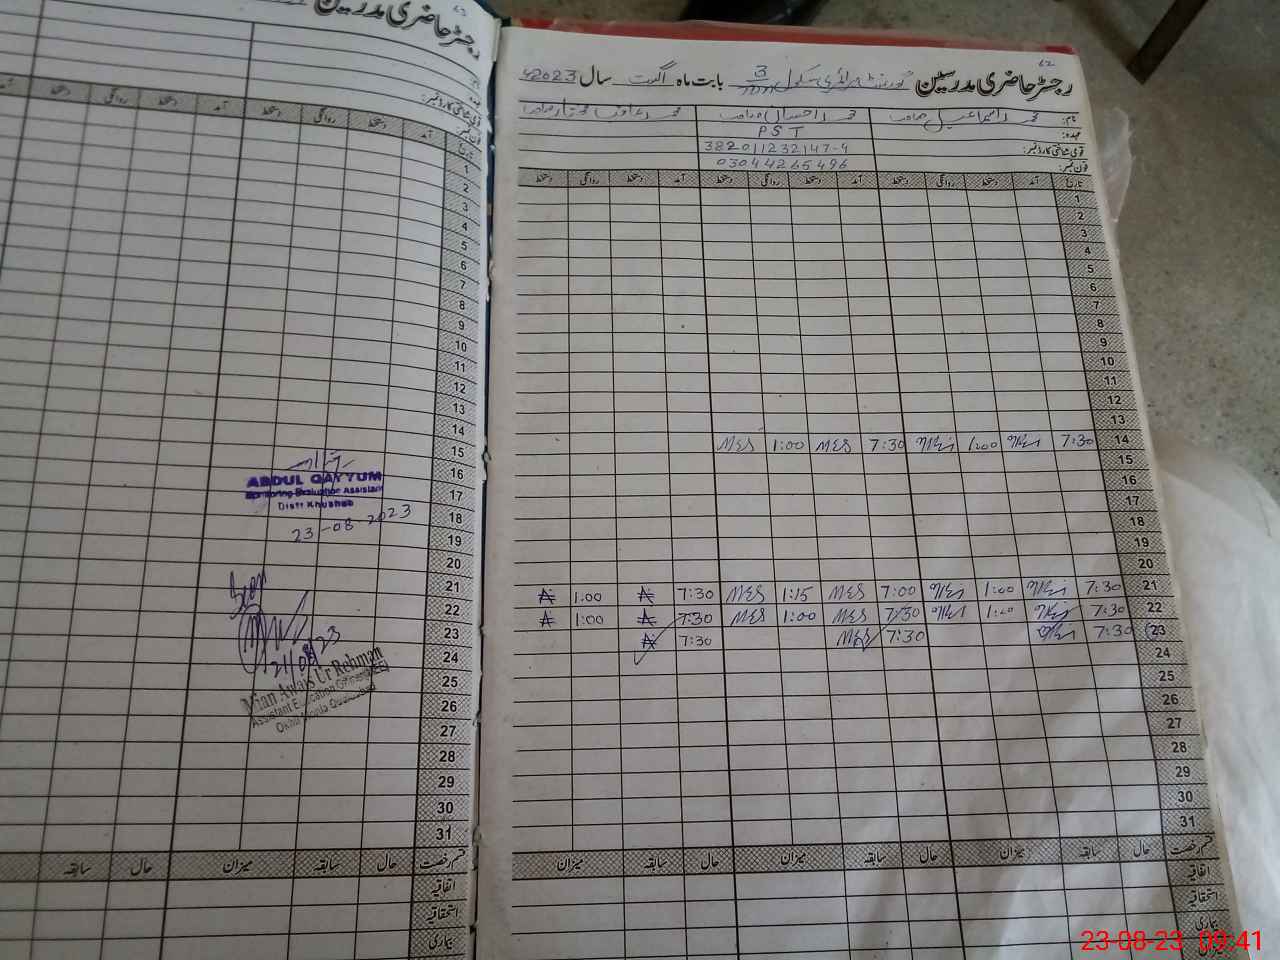 رجسٹر حاضری مدرسین گورنمنٹ پرائمری سکول 3 بابت ماہ اگست سال 2023ء
نام: محمد اسماعیل صاحب محمد احسان صاحب محمد
عہدہ: PST
قومی شناختی کارڈ نمبر: 382011232147-9
فون نمبر: 03044265496
تاریخ آمد دستخط روانگی دستخط آمد دستخط روانگی دستخط آمد دستخط روانگی دستخط
1
2
3
4
5
6
7
8
9
10
11
12
13
14 7:30 1:00 7:30 MES 1:00 MES
15
16
17
18
19
20
21 7:30 1:00 7:00 MES 1:15 MES 7:30 A 1:00 A
22 7:30 1:00 7:30 MES 1:00 MES 7:30 A 1:00 A
23 7:30 7:30 MES 7:30 A
24
25
26
27
28
29
30
31
قسم رخصت حال سابقہ میزان حال سابقہ میزان حال سابقہ میزان
اتفاقیہ
استحقاقیہ
بیماری
رجسٹر حاضری مدرسین
عہدہ
قومی شناختی کارڈ نمبر:
فون نمبر:
تاریخ آمد دستخط روانگی دستخط آمد دستخط روانگی دستخط
1
2
3
4
5
6
7
8
9
10
11
12
13
14
15
16
17
18
19
20
21
22
23
24
25
26
27
28
29
30
31
ABDUL QAYYUM
Monitoring Evaluation Assistant
Distt Khushab
23-08-2023
21/08/23
Mian Awais Ur Rehman
Assistant Education Officer (EE)
قسم رخصت حال سابقہ میزان حال سابقہ
اتفاقیہ
استحقاقیہ
بیماری
23-08-23 09:41